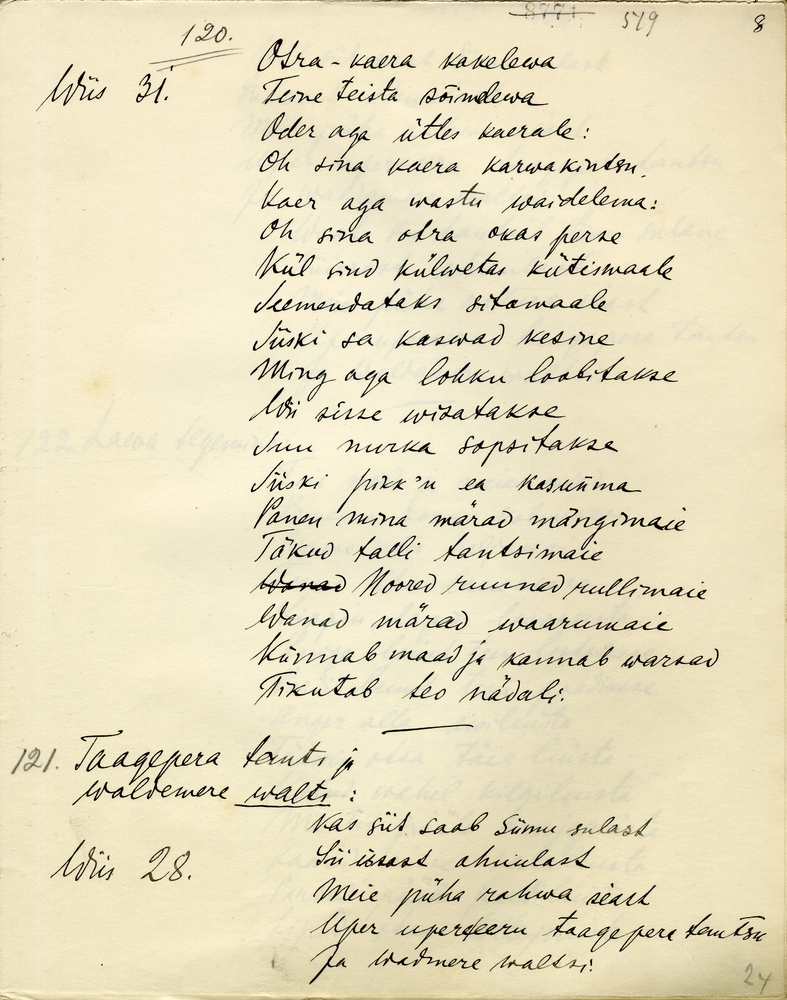 8771 519 8
120.
Otra-kaera kakelewa
Wiis 31. Teine teista sõimlewa
Oder aga ütles kaerale:
Oh sina kaera karwakintsu,
Kaer aga wastu waidelema:
Oh sina otra okas perse
Kül sind külwetas kütismaale
Seemendataks sitawaale
Siiski sa kaswad kesine
Ming aga lohku loobitakse
Wii sisse wisatakse
Suu nurka sopsitakse
Siiski pikk'u ea kasuüma
Panen mina märad mängimaie
Täkud talli tantsimaie
Wanad Noored ruunad rullimaie
Wanad märad waarumaie
Künnab maad ja kannab warsad
Tikutab teo nädali.
121. Taagepera tants ja
waldemere walts:
Kas siit saab Siimu sulast
Wiis 28. Sii issast ahnulast
Meie püha rahwa seast
Uper uperkeeru taagepera tantsu
Ja wadmere waltsi.
24